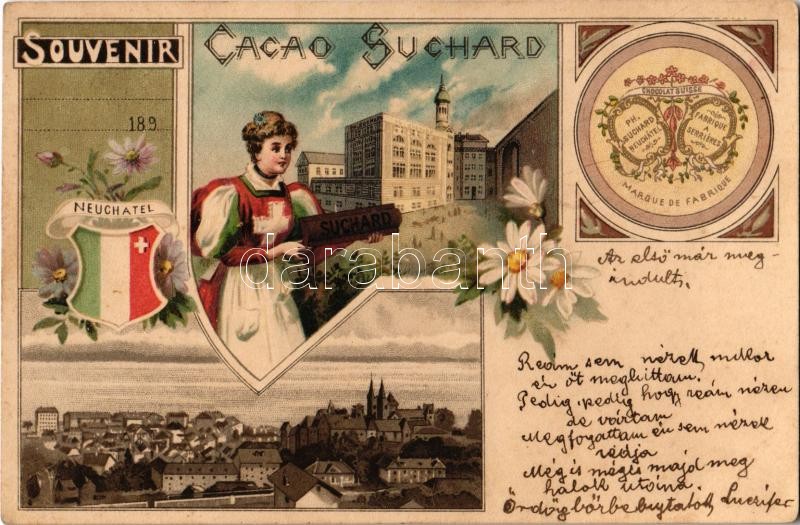 SOUVENIR
CACAO SUCHARD
189
NEUCHATEL
SUCHARD
CHOCOLAT SUISSE
PH. SUCHARD NEUCHÂTEL
FABRIQUE A SERRIÈRES
MARQUE DE FABRIQUE
darabanth
Az első már meg-
indult,
Reám sem nézett mikor
én őt meghittam.
Pedig, pedig hogy reám nézzen
de vártam
Megfogattam én sem nézek
reája
Még is mégis majd meg
halok utána.
Ördögbőrbe bujtatott Luczifer